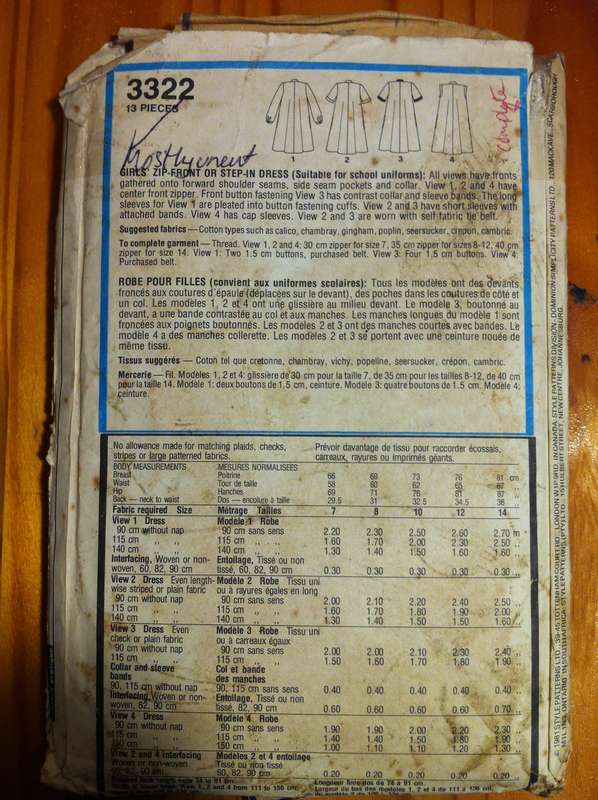 3322
13 PIECES
1 2 3 4
complete
Mostly uncut
GIRLS' ZIP-FRONT OR STEP-IN DRESS (Suitable for school uniforms): All views have fronts
gathered onto forward shoulder seams, side seam pockets and collar. View 1, 2 and 4 have
center front zipper. Front button fastening View 3 has contrast collar and sleeve bands. The long
sleeves for View 1 are pleated into button fastening cuffs. View 2 and 3 have short sleeves with
attached bands. View 4 has cap sleeves. View 2 and 3 are worn with self fabric tie belt.
Suggested fabrics — Cotton types such as calico, chambray, gingham, poplin, seersucker, crepon, cambric.
To complete garment — Thread. View 1, 2 and 4: 30 cm zipper for size 7, 35 cm zipper for sizes 8-12, 40 cm
zipper for size 14. View 1: Two 1.5 cm buttons, purchased belt. View 3: Four 1.5 cm buttons. View 4:
Purchased belt.
ROBE POUR FILLES (convient aux uniformes scolaires): Tous les modèles ont des devants
froncés aux coutures d'épaule (déplacées sur le devant), des poches dans les coutures de côté et
un col. Les modèles 1, 2 et 4 ont une glissière au milieu devant. Le modèle 3, boutonné au
devant, a une bande contrastée au col et aux manches. Les manches longues du modèle 1 sont
froncées aux poignets boutonnés. Les modèles 2 et 3 ont des manches courtes avec bandes. Le
modèle 4 a des manches collerette. Les modèles 2 et 3 se portent avec une ceinture nouée de
même tissu.
Tissus suggérés — Coton tel que cretonne, chambray, vichy, popeline, seersucker, crépon, cambric.
Mercerie — Fil. Modèles 1, 2 et 4: glissière de 30 cm pour la taille 7, de 35 cm pour les tailles 8-12, de 40 cm
pour la taille 14. Modèle 1: deux boutons de 1.5 cm, ceinture. Modèle 3: quatre boutons de 1.5 cm. Modèle 4:
ceinture.
No allowance made for matching plaids, checks, Prévoir davantage de tissu pour raccorder écossais,
stripes or large patterned fabrics. carreaux, rayures ou imprimés géants.
BODY MEASUREMENTS MESURES NORMALISEES
Breast Poitrine 66 69 73 76 81 cm
Waist Tour de taille 58 60 62 65 67 ,,
Hip Hanches 69 71 76 81 87 ,,
Back — neck to waist Dos — encolure à taille 29.5 31 32.5 34.5 36 ,,
Fabric required Size Métrage Tailles 7 8 10 12 14
View 1 Dress Modèle 1 Robe
90 cm without nap 90 cm sans sens 2.20 2.30 2.50 2.60 2.70 m
115 cm ,, ,, 115 cm ,, ,, 1.60 1.70 2.00 2.30 2.50 ,,
140 cm ,, ,, 140 cm ,, ,, 1.30 1.40 1.50 1.60 1.60 ,,
Interfacing, Woven or non- Entoilage, Tissé ou non
woven, 60, 82, 90 cm tissé, 60, 82, 90 cm 0.30 0.30 0.30 0.30 0.30 ,,
View 2 Dress Even length- Modèle 2 Robe Tissu uni
wise striped or plain fabric ou à rayures égales en long
90 cm without nap 90 cm sans sens 2.00 2.10 2.20 2.40 2.50 ,,
115 cm ,, ,, 115 cm ,, ,, 1.60 1.70 1.80 1.90 2.00 ,,
140 cm ,, ,, 140 cm ,, ,, 1.30 1.40 1.50 1.50 1.60 ,,
View 3 Dress Even Modèle 3 Robe Tissu uni
check or plain fabric ou à carreaux égaux
90 cm without nap 90 cm sans sens 2.00 2.00 2.10 2.30 2.40 ,,
115 cm ,, ,, 115 cm ,, ,, 1.50 1.60 1.70 1.80 1.90 ,,
Collar and sleeve Col et bande
bands des manches
90, 115 cm without nap 90, 115 cm sans sens 0.40 0.40 0.40 0.40 0.40 ,,
Interfacing, Woven or non- Entoilage, Tissé ou non
woven, 62, 90 cm tissé, 82, 90 cm 0.60 0.60 0.60 0.60 0.70 ,,
View 4 Dress Modèle 4 Robe
90 cm without nap 90 cm sans sens 1.90 1.90 2.00 2.20 2.30 ,,
115 cm ,, ,, 115 cm ,, ,, 1.40 1.40 1.50 1.80 1.90 ,,
150 cm ,, ,, 150 cm ,, ,, 1.00 1.10 1.10 1.20 1.30 ,,
View 2 and 4 interfacing Modèles 2 et 4 entoilage
Woven or non-woven Tissé ou non tissé
60, 82, 90 cm 60, 82, 90 cm 0.20 0.20 0.20 0.20 0.20 ,,
© 1981 STYLE PATTERNS LTD., 39-45 TOTTENHAM COURT RD., LONDON W1P 9RD. IN CANADA: STYLE PATTERNS DIVISION - DOMINION SIMPLICITY PATTERNS LTD. 120 MACK AVE., SCARBOROUGH